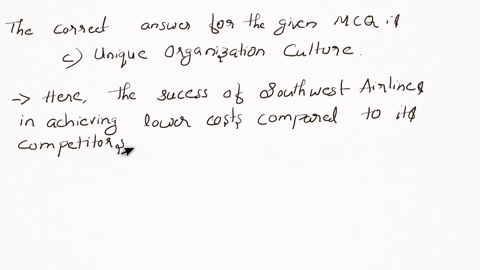 The correct answer for the given MCQ is
c) Unique Organization Culture.
→ Here, the sucess of Southwest Airlines
in achieving lower costs compared to its
competitors